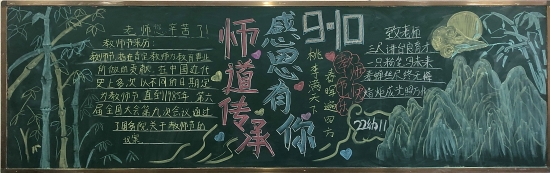 老师您辛苦了!
教师节来历
教师节,旨在肯定教师为教育事业
所做的贡献,在中国近代
史上多次以不同的日期定
为教师节,直到1985年,第六
届全国人大会第九次会议通过
了国务院关于教师节的
议案
师道传承
感恩有你
9·10
桃李满天下
春晖遍四方
教师节快乐
致老师
三尺讲台育
一只粉笔写未来